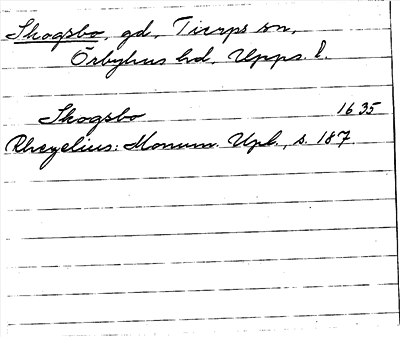 Skogsbo, gd, Tierps sn,
Örbyhus hd, Upps. l.
Skogsbo 1635
Rhezelius: Monum. Upl., s. 187